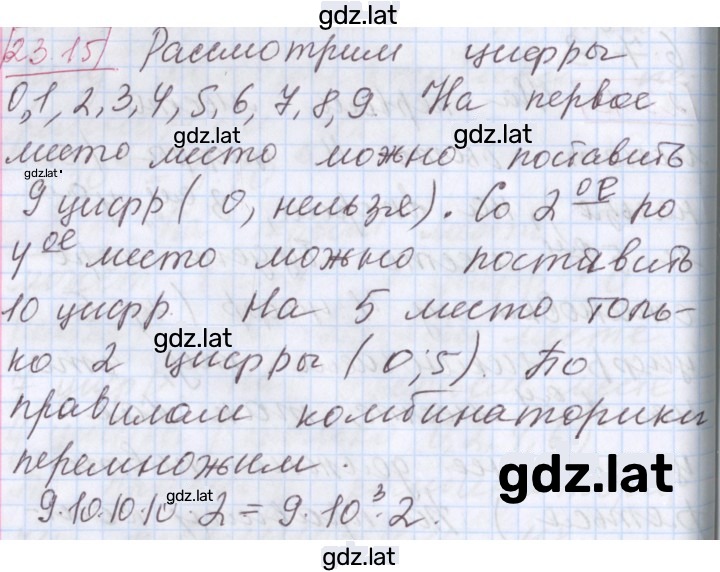 gdz.lat
23.15 Рассмотрим цифры
gdz.lat
0,1, 2,3,4,5,6,7,8,9. На первое
gdz.lat
место место можно поставить
gdz.lat gdz.lat
9 цифр ( 0, нельзя). Со 2 ое ро
gdz.lat
4 ое место можно поставить
10 цифр. На 5 место толь-
gdz.lat
ко 2 цифры (0;5). По
правилам комбинаторики
gdz.lat
перемножим.
gdz.lat
gdz.lat
9·10·10·10·2=9·10³·2.
gdz.lat